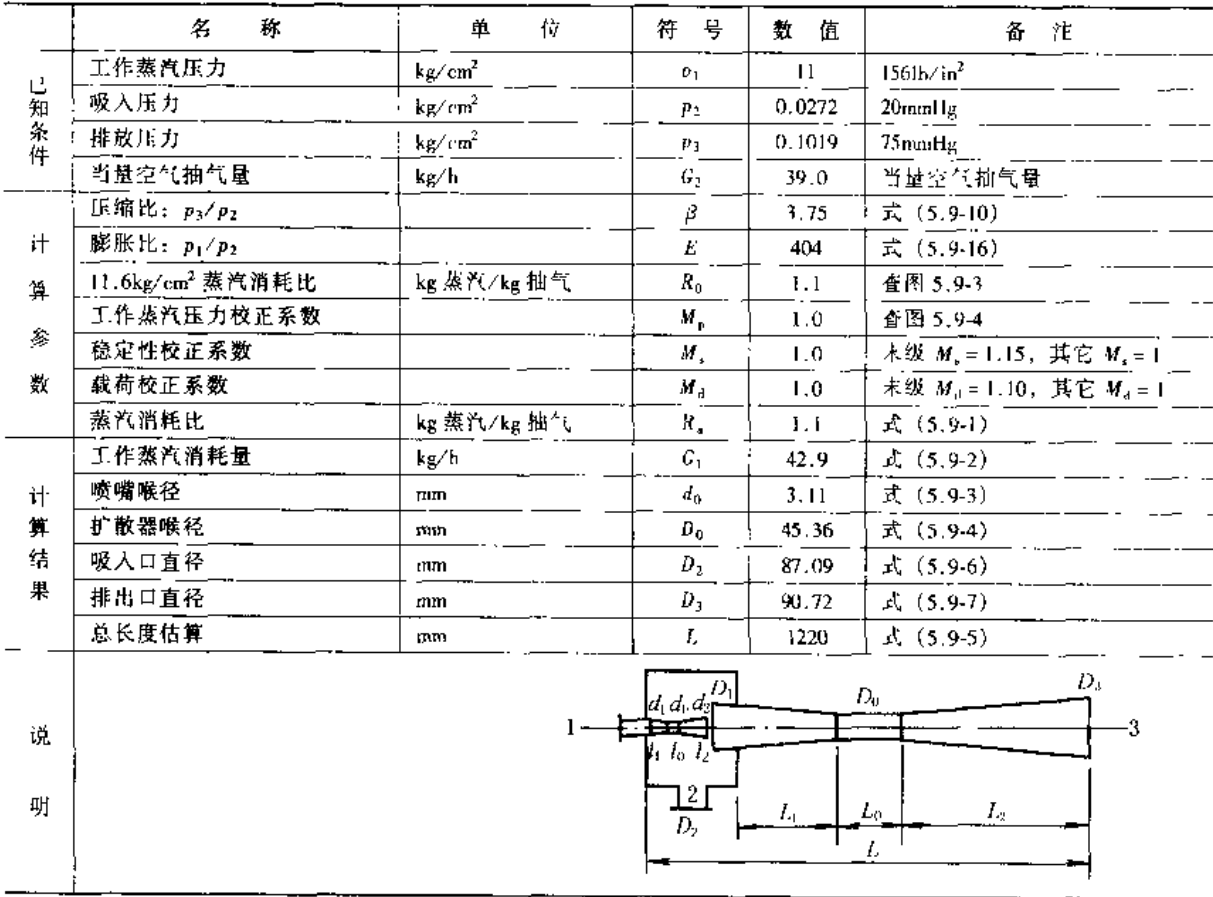 名 称 单 位 符 号 数 值 备 注
已知条件
工作蒸汽压力 kg/cm² p₁ 11 156lb/in²
吸入压力 kg/cm² p₂ 0.0272 20mmHg
排放压力 kg/cm² p₃ 0.1019 75mmHg
当量空气抽气量 kg/h G₂ 39.0 当量空气抽气量
计算参数
压缩比：p₃/p₂ β 3.75 式（5.9-10）
膨胀比：p₁/p₂ E 404 式（5.9-16）
11.6kg/cm² 蒸汽消耗比 kg 蒸汽/kg 抽气 R₀ 1.1 查图 5.9-3
工作蒸汽压力校正系数 Mₚ 1.0 查图 5.9-4
稳定性校正系数 Mₛ 1.0 末级 Mₛ = 1.15，其它 Mₛ = 1
载荷校正系数 M_d 1.0 末级 M_d = 1.10，其它 M_d = 1
蒸汽消耗比 kg 蒸汽/kg 抽气 Rₐ 1.1 式（5.9-1）
计算结果
工作蒸汽消耗量 kg/h G₁ 42.9 式（5.9-2）
喷嘴喉径 mm d₀ 3.11 式（5.9-3）
扩散器喉径 mm D₀ 45.36 式（5.9-4）
吸入口直径 mm D₂ 87.09 式（5.9-6）
排出口直径 mm D₃ 90.72 式（5.9-7）
总长度估算 mm L 1220 式（5.9-5）
说明
D₁ D₀ D₃
d₁ d₁ d₂
1 3
l₁ l₀ l₂
2
D₂ L₁ L₀ L₂
L